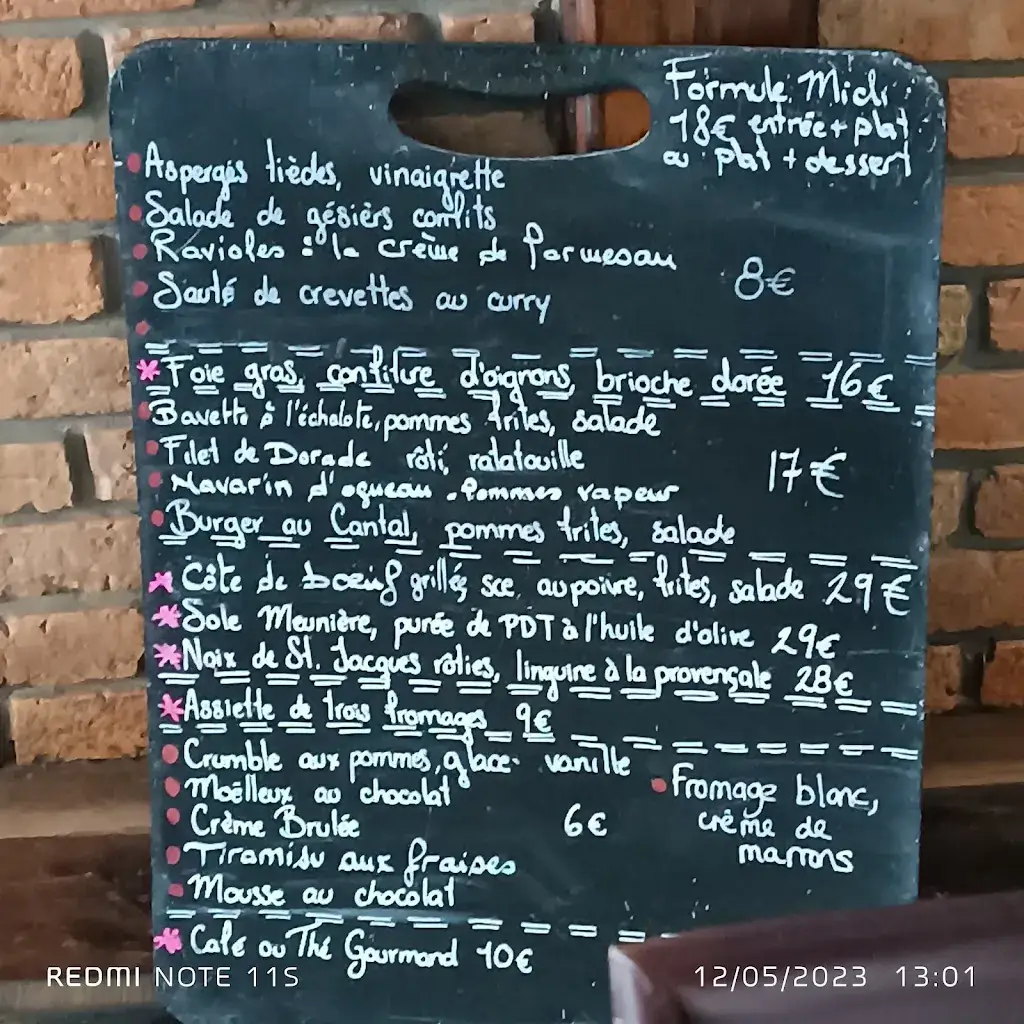 Formule Midi :
18€ entrée + plat
ou plat + dessert
Asperges tièdes, vinaigrette
Salade de gésiers confits
Ravioles à la crème de Parmesan
Sauté de crevettes au curry
8€
Foie gras, confiture d'oignons, brioche dorée 16€
Bavette à l'échalote, pommes frites, salade
Filet de Dorade rôti, ratatouille
17€
Navarin d'agneau. Pommes vapeur
Burger au Cantal, pommes frites, salade
Côte de boeuf grillée, sce. au poivre, frites, salade 29€
Sole Meunière, purée de PDT à l'huile d'olive 29€
Noix de St. Jacques rôties, linguine à la provençale 28€
Assiette de trois fromages 9€
Crumble aux pommes, glace vanille
Moëlleux au chocolat
Crème Brulée
6€
Tiramisu aux fraises
Mousse au chocolat
Fromage blanc,
crème de
marrons
Café ou Thé Gourmand 10€
REDMI NOTE 11S
12/05/2023 13:01